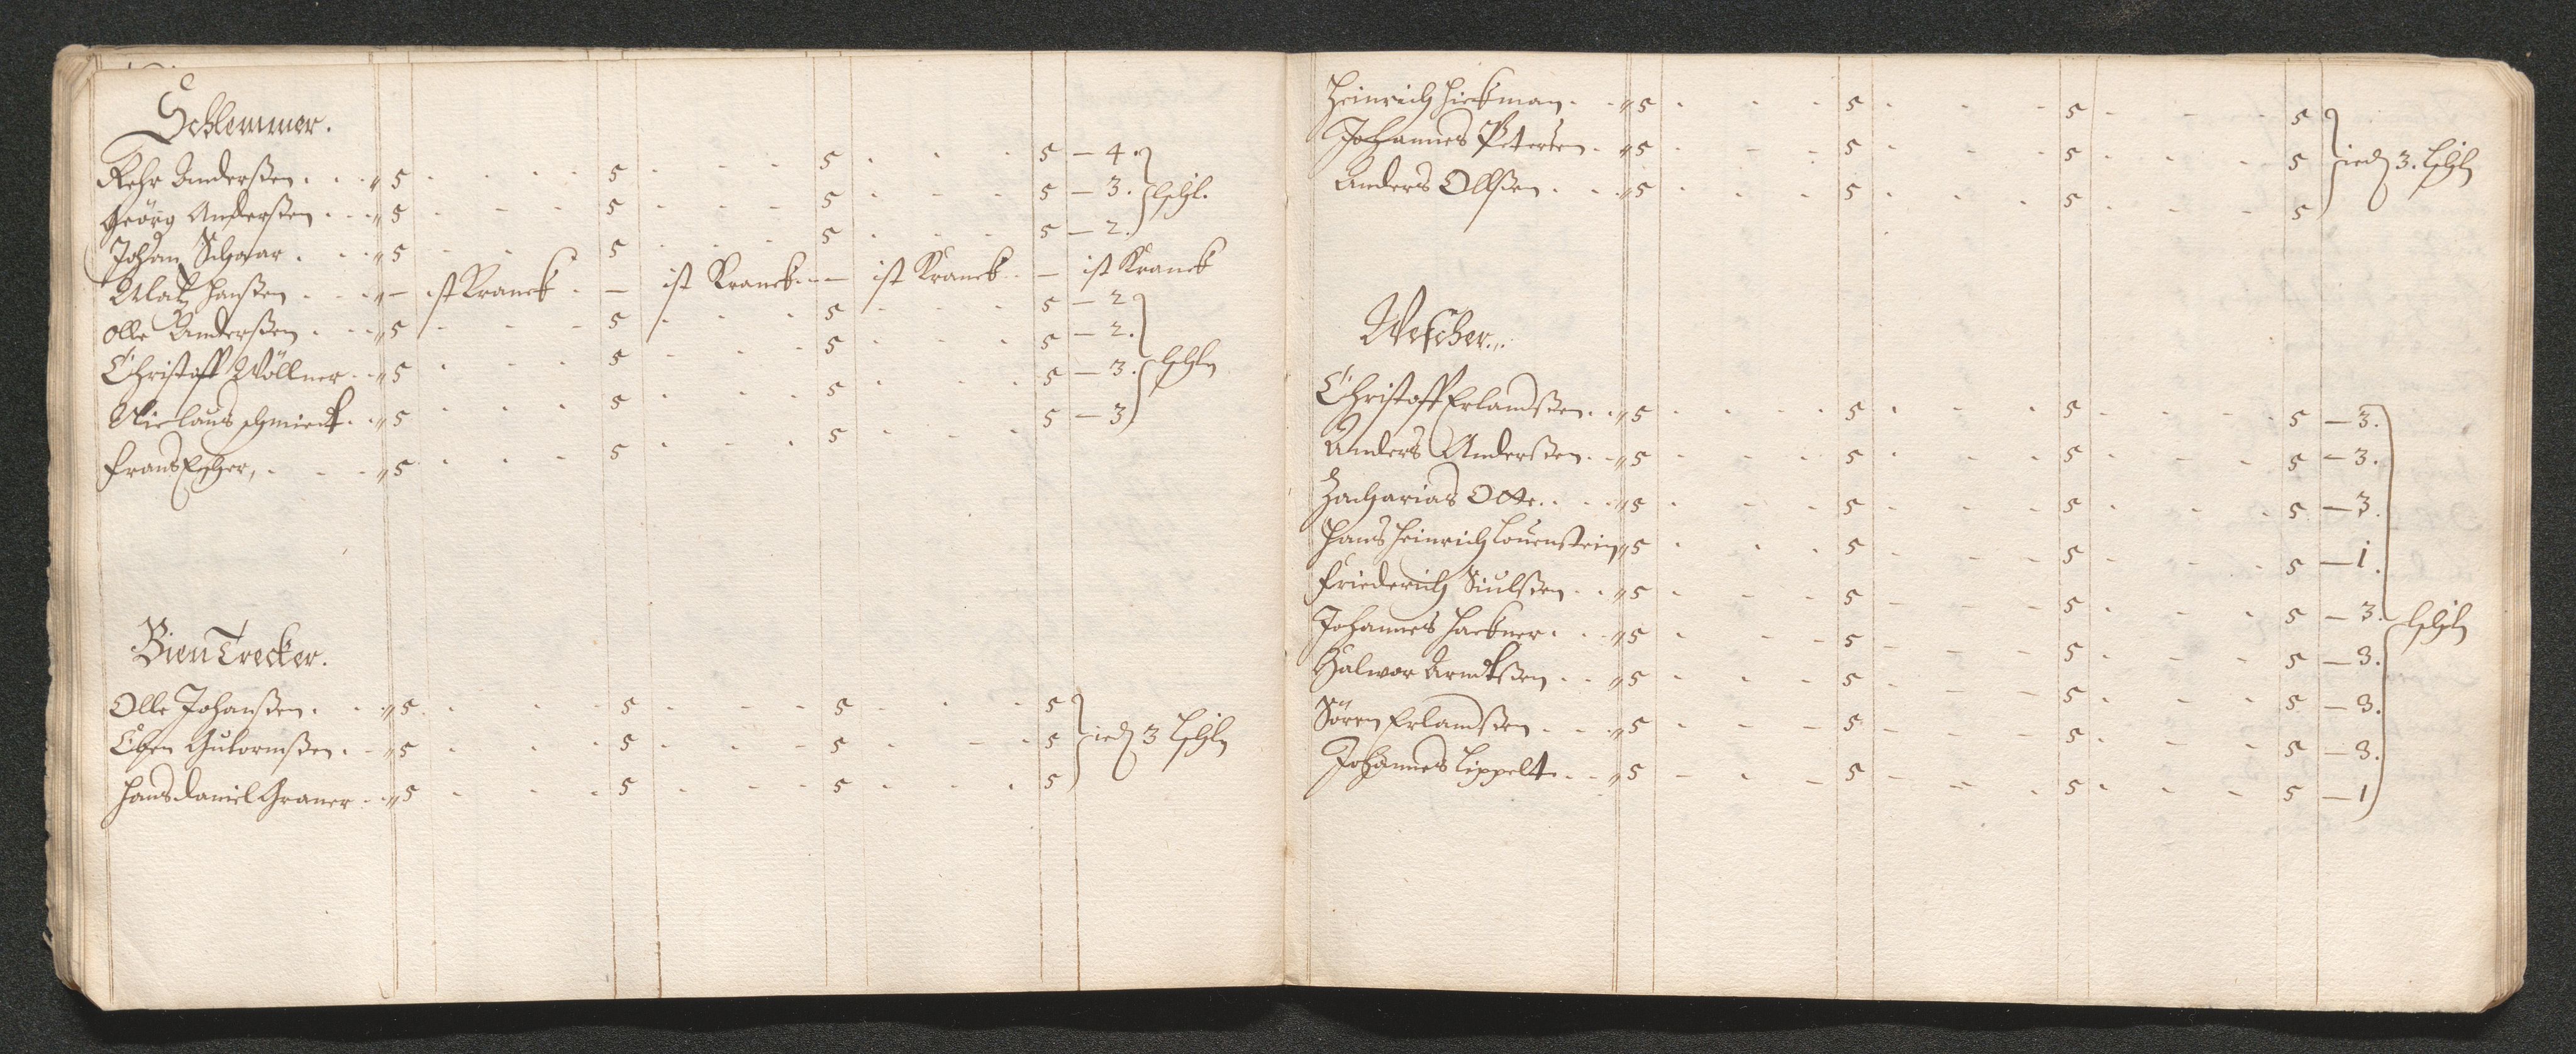 Schlemmer.
Kehr Anderßen. . . „ 5 . . . . 5 . . . 5 . . . 5 — 4.
Geörg Anderßen . . „ 5 . - - 5 . . . 5 . - - 5 — 3. lßhl.
Johan Schwar . . . „ 5 . . . 5 . . . 5 . . . 5 — 2.
Matz Hanßen . . . „ — ist Kranck . — ist Kranck . — ist Kranck . — ist Kranck
Olle Anderßen . . . „ 5 . . - 5 . . . 5 - . . 5 — 2
Christoff Wöllner . . „ 5 . . . 5 - . . 5 . . . 5 — 2.
Niclaus schmiedt . . „ 5 . . . 5 . . . 5 . . . 5 — 3. lßhl
Frans Escher, . . . „ 5 . . - 5 . - . 5 . - . 5 — 3
Bien Trecker.
Olle Johanßen . . . „ 5 . . - 5 . - - 5 . . . 5
Eben Gulormßen . - „ 5 . . . 5 . . - 5 . - . 5 ied 3 lßhl
Hans daniel Graner . . „ 5 . . . 5 . . - 5 . . . 5
Heinrich Hickman . . „ 5 . . . 5 . . - 5 . . - 5
Johannes Peterßen . „ 5 . - . 5 . . . 5 . . . 5 ied 3. lßhl
Anders Ollßen . . . „ 5 . . . 5 . . . 5 . . - 5
Wescher.
Christoff Erlandßen . . „ 5 . . . 5 . - . 5 . . . 5 — 3.
Anders Anderßen . - „ 5 - . . 5 . . . 5 . . - 5 — 3.
Zacharias Otte . . . „ 5 . - . 5 . . . 5 . . . 5 — 3.
Hans Heinrich Louenstein „ 5 . . . 5 . - . 5 . . . 5 — i.
Friederich Siulßen . . „ 5 . . . 5 - - - 5 . . . 5 — 3.
Johannes Hackner . . . „ 5 . . - 5 - - - 5 . - - 5 — 3. lßhl
Halwor Arndtßen . . „ 5 . . . 5 . . - 5 . . . 5 — 3.
Sören Erlandßen . . . „ 5 . - - 5 - - - 5 . . . 5 — 3.
Johannes Lippelt . . „ 5 - . - 5 - - . 5 . . - 5 — 1